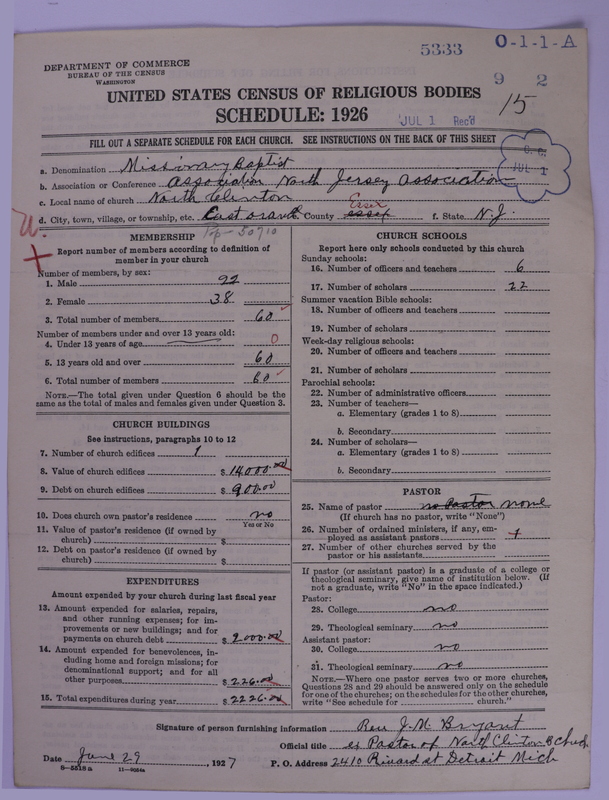 5333 O-1-1-A
DEPARTMENT OF COMMERCE
BUREAU OF THE CENSUS
WASHINGTON
9 2
UNITED STATES CENSUS OF RELIGIOUS BODIES
SCHEDULE: 1926
15
JUL 1 Rec'd
FILL OUT A SEPARATE SCHEDULE FOR EACH CHURCH. SEE INSTRUCTIONS ON THE BACK OF THIS SHEET
JUL 1
a. Denomination Missionary Baptist
b. Association or Conference Association North Jersey Association
c. Local name of church North Clinton
Essex
d. City, town, village, or township, etc. East orange e. County essex f. State N.J.
MEMBERSHIP
Report number of members according to definition of
member in your church
Number of members, by sex:
1. Male 22
2. Female 38
3. Total number of members 60
Number of members under and over 13 years old:
4. Under 13 years of age 0
5. 13 years old and over 60
6. Total number of members 60
NOTE.—The total given under Question 6 should be
same as the total of males and females given under Question 3.
CHURCH BUILDINGS
See instructions, paragraphs 10 to 12
7. Number of church edifices 1
8. Value of church edifices $ 14000.00
9. Debt on church edifices $ 900.00
10. Does church own pastor's residence no
Yes or No
11. Value of pastor's residence (if owned by
church) $
12. Debt on pastor's residence (if owned by
church) $
EXPENDITURES
Amount expended by your church during last fiscal year
13. Amount expended for salaries, repairs,
and other running expenses; for im-
provements or new buildings; and for
payments on church debt $ 2000.00
14. Amount expended for benevolences, in-
cluding home and foreign missions; for
denominational support; and for all
other purposes $ 226.00
15. Total expenditures during year $ 2226.00
CHURCH SCHOOLS
Report here only schools conducted by this church
Sunday schools:
16. Number of officers and teachers 6
17. Number of scholars 22
Summer vacation Bible schools:
18. Number of officers and teachers
19. Number of scholars
Week-day religious schools:
20. Number of officers and teachers
21. Number of scholars
Parochial schools:
22. Number of administrative officers
23. Number of teachers—
a. Elementary (grades 1 to 8)
b. Secondary
24. Number of scholars—
a. Elementary (grades 1 to 8)
b. Secondary
PASTOR
25. Name of pastor no Pastor none
(If church has no pastor, write "None")
26. Number of ordained ministers, if any, em-
ployed as assistant pastors
27. Number of other churches served by the
pastor or his assistants
If pastor (or assistant pastor) is a graduate of a college or
theological seminary, give name of institution below. (If
not a graduate, write "No" in the space indicated.)
Pastor:
28. College no
29. Theological seminary no
Assistant pastor:
30. College no
31. Theological seminary no
NOTE.—Where one pastor serves two or more churches,
Questions 28 and 29 should be answered only on the schedule
for one of the churches; on the schedules for the other churches,
write "See schedule for church."
Signature of person furnishing information Rev J. M. Bryant
Official title ex Pastor of North Clinton B Church
Date June 29, 1927 P. O. Address 2410 Rivard st Detroit Mich
8-5518 a 11-9084a